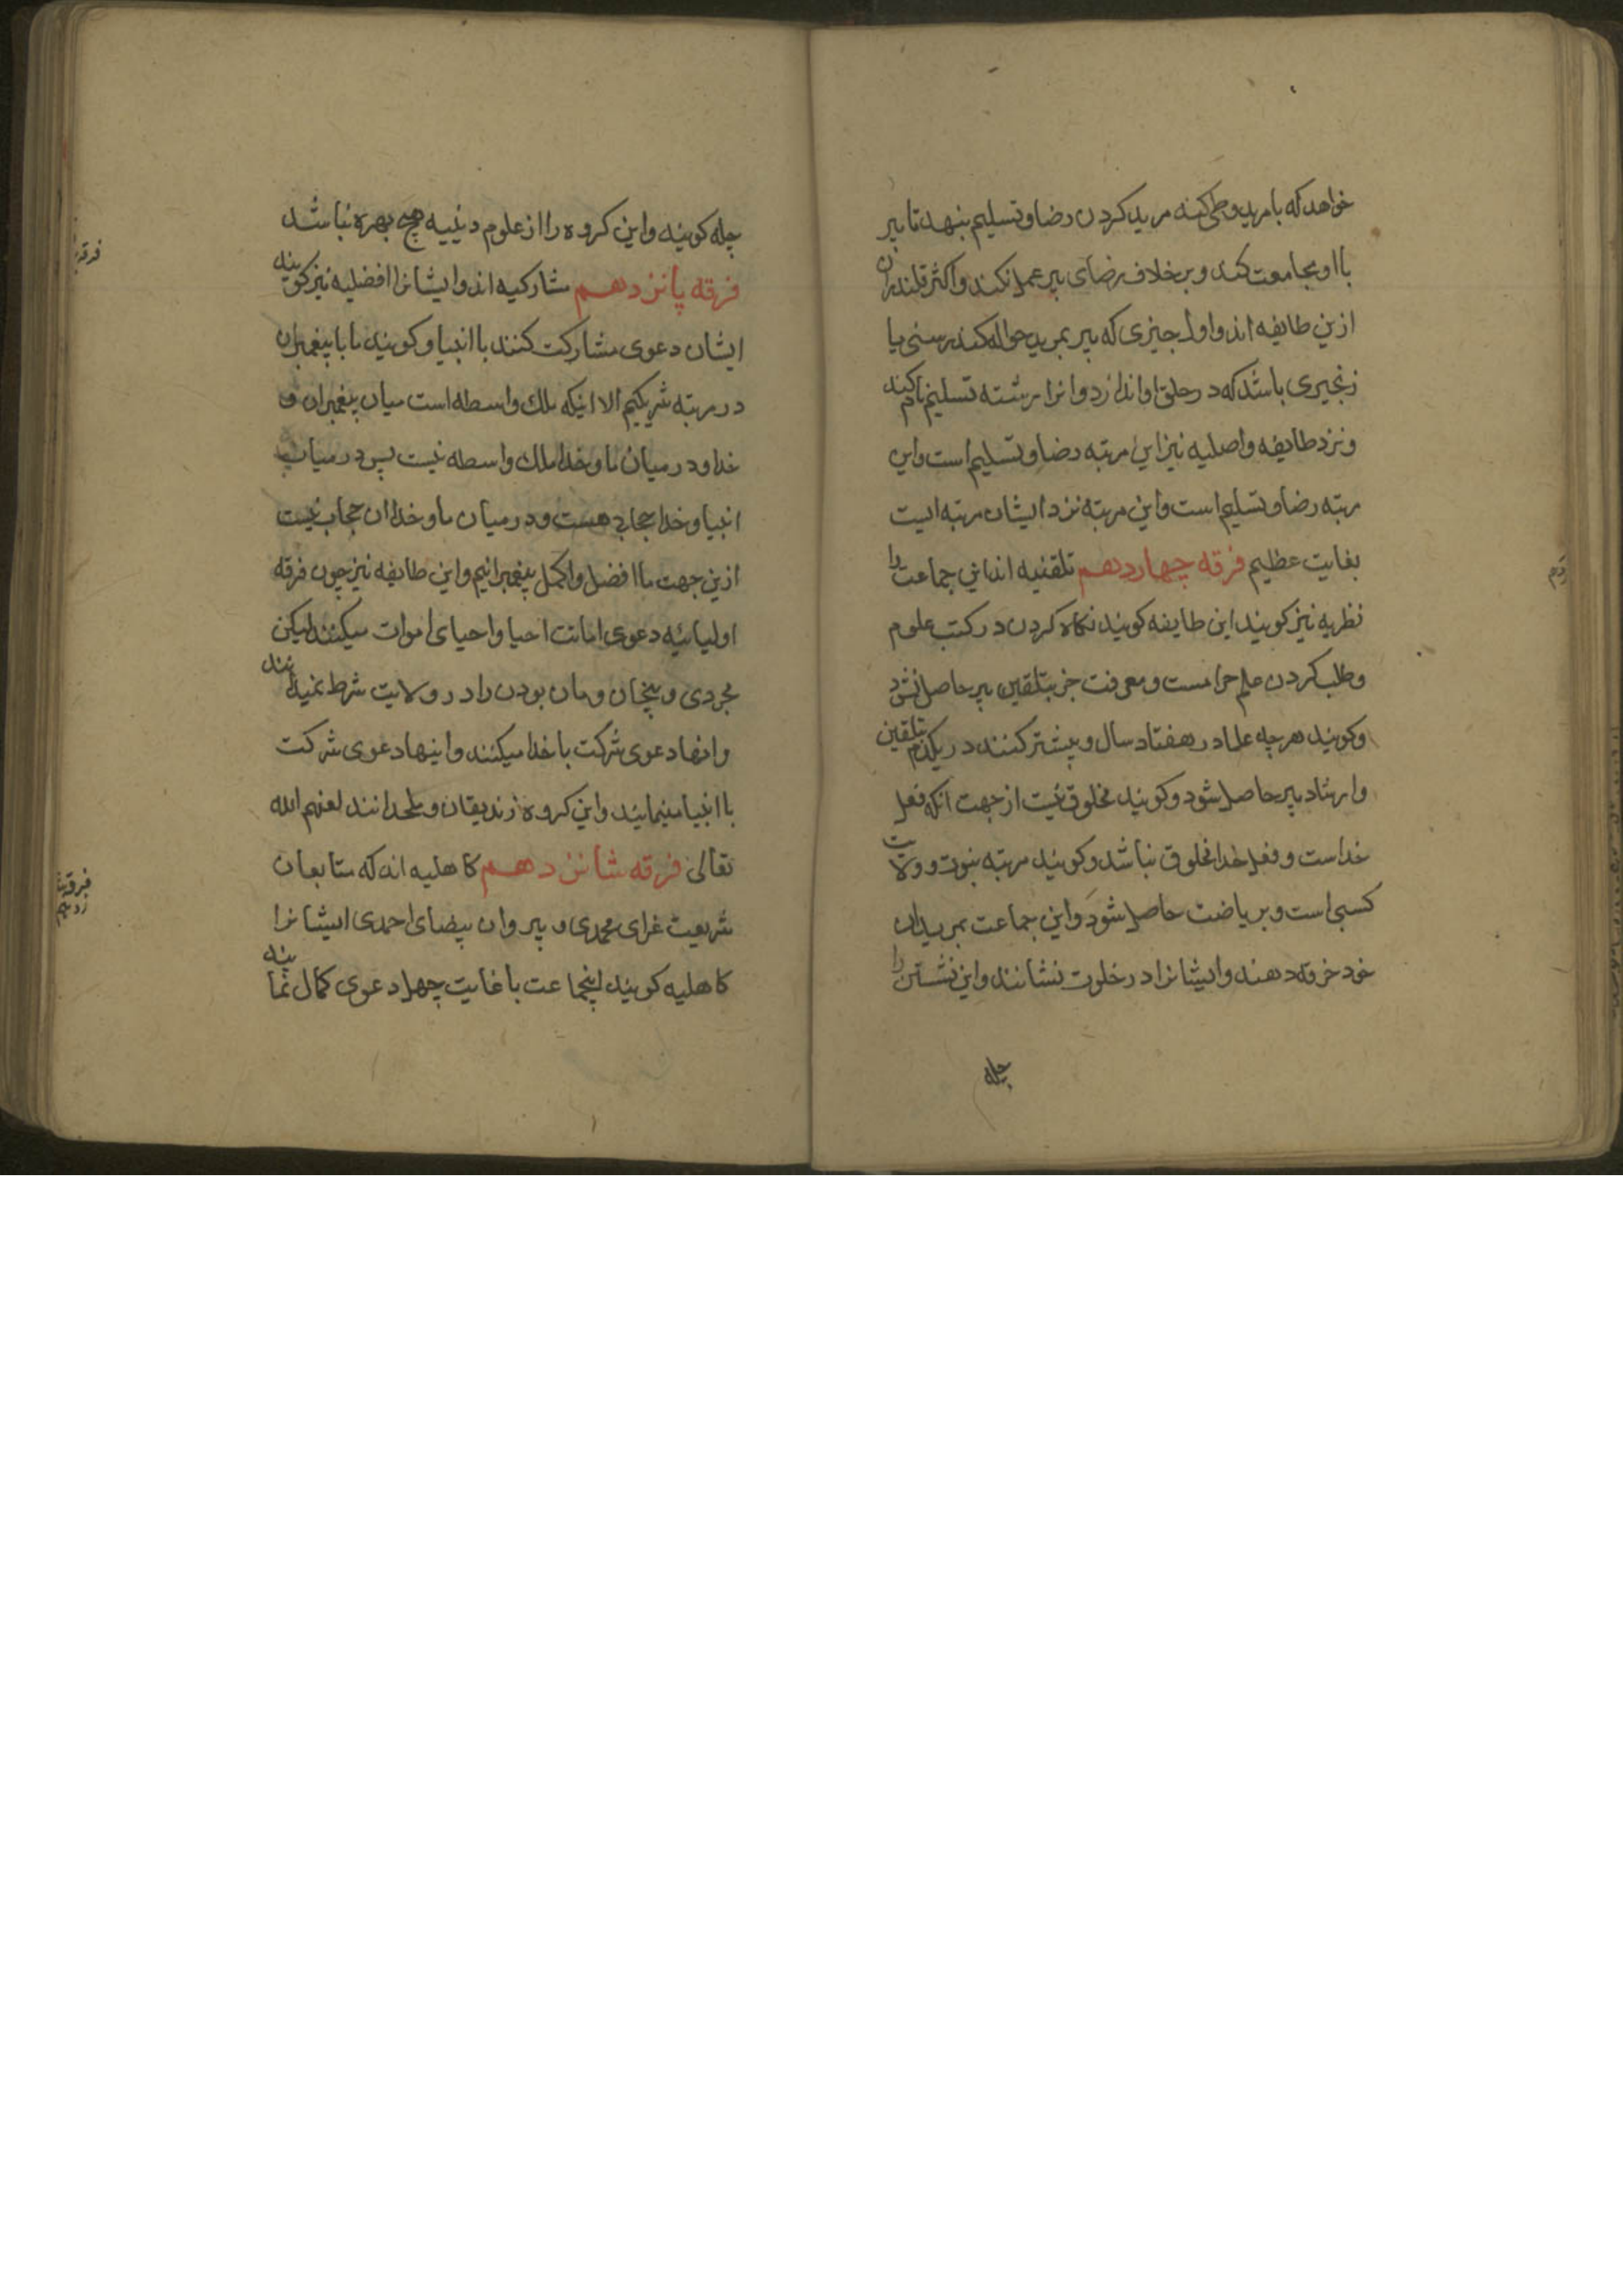 خواهد که با مرید وطی کند مرید کردن رضا و تسلیم بنهد تا پیر
با او مجامعت کند و بر خلاف رضای پیر عمل نکند و اکثر قلندران
ازین طایفه اند و اول چیزی که پیر بمرید حواله کند رسنی یا
زنجیری باشد که در حلق او اندازد و انرا رشته تسلیم نام کند
و نزد طایفه واصلیه نیز این مرتبه رضا و تسلیم است و این
مرتبه رضا و تسلیم است و این مرتبه نزد ایشان مرتبه ایست
بغایت عظیم فرقه چهاردهم تلقنیه اند این جماعت را
نظریه نیز کویند این طایفه کویند نکاه کردن در کتب علوم
و طلب کردن علم حرامست و معرفت جز بتلقین پیر حاصل نشود
و کویند هرچه علما در هفتاد سال و بیشتر کنند در یکدم بتلقین
و ارشاد پیر حاصل شود و کویند مخلوق نیست از جهت انکه فعل
خداست و فعل خدا مخلوق نباشد و کویند مرتبه نبوت و ولایت
کسبی است و بریاضت حاصل شود و این جماعت بمریدان
خود خرقه دهند و ایشانرا در خلوت نشانند و این نشستن را
چله
چله کویند و این کروه را از علوم دینیه هیچ بهره نباشد
فرقه پانزدهم مشارکیه اند و ایشانرا افضلیه نیز کویند
ایشان دعوی مشارکت کنند با انبیا و کویند ما با پیغمبران
در مرتبه شریکیم الا اینکه ملک واسطه است میان پیغمبران و
خدا و در میان ما و خدا ملک واسطه نیست پس در میان
انبیا و خدا حجاب هست و در میان ما و خدا ان حجاب نیست
ازین جهت ما افضل و اکمل پیغمبرانیم و این طایفه نیز چون فرقه
اولیائیه دعوی اماتت احیا و احیای اموات میکنند لیکن
مجردی و بیخان و مان بودن را در ولایت شرط نمیدانند
و انها دعوی شرکت با خدا میکنند و اینها دعوی شرکت
با انبیا مینمایند و این کروه زندیقان و ملحدانند لعنهم الله
تعالی فرقه شانزدهم کاهلیه اند که متابعان
شریعت غرای محمدی و پیروان بیضای احمدی ایشانرا
کاهلیه کویند اینجماعت با غایت جهل دعوی کمال نمایند